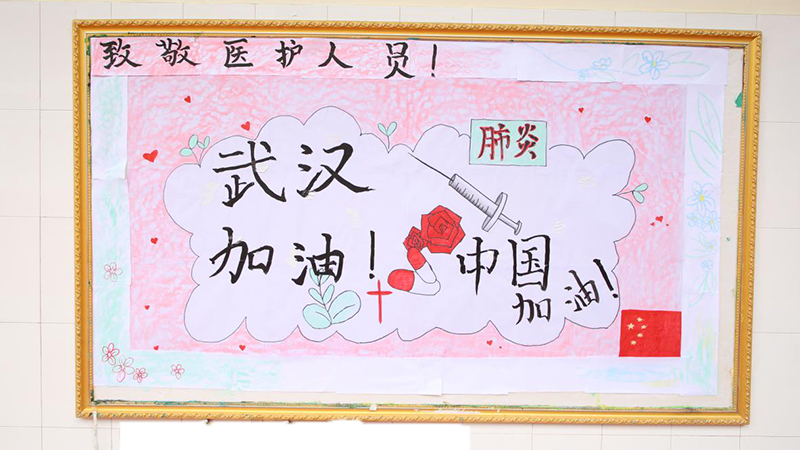 致敬医护人员!
肺炎
武汉
加油!
中国
加油!